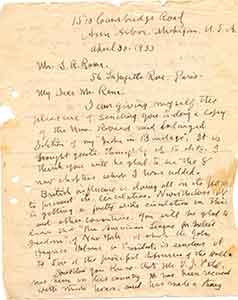 1510 Cambridge Road
Ann Arbor, Michigan, U.S.A
April 20, 1933
Mr. S. R. Rana
56 Lafayette Rue, Paris.
My Dear Mr. Rana:
I am giving myself the
pleasure of sending you today a copy
of the New, Revised and Enlarged
Edition of my India in Bondage. It is
brought quite thoroughly up to date. I
think you will be glad to see the 8
new chapters which I have added.
British influence is doing all in its power
to prevent its circulation. Nevertheless it
is getting a pretty wide circulation in this
and other countries. You will be glad to
know that the American League for India's
Freedom of New York, of which Dr. John
Haynes Holmes is President, is sending it
to of the principal libraries of the world.
Doubtless you know that Mr. V. J. Patel
now in this country. He has been received
with much honor, and has made a